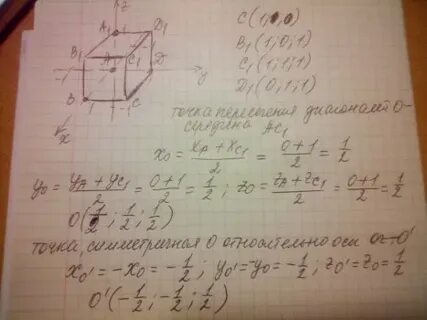 z
A₁ 1 D₁
B₁ C₁
A D y
B C
x
C(1;0;0)
B₁(1;0;1)
C₁(1;1;1)
D₁(0;1;1)
точка пересечения диагоналей O-
середина AC₁
x₀ = (x_A + x_C₁)/2 = (0+1)/2 = 1/2
y₀ = (y_A + y_C₁)/2 = (0+1)/2 = 1/2 ; z₀ = (z_A + z_C₁)/2 = (0+1)/2 = 1/2
O(1/2 ; 1/2 ; 1/2)
точка, симметричная O относительно оси Oz - O′
x₀′ = -x₀ = -1/2 ; y₀′ = -y₀ = -1/2 ; z₀′ = z₀ = 1/2
O′(-1/2 ; -1/2 ; 1/2)